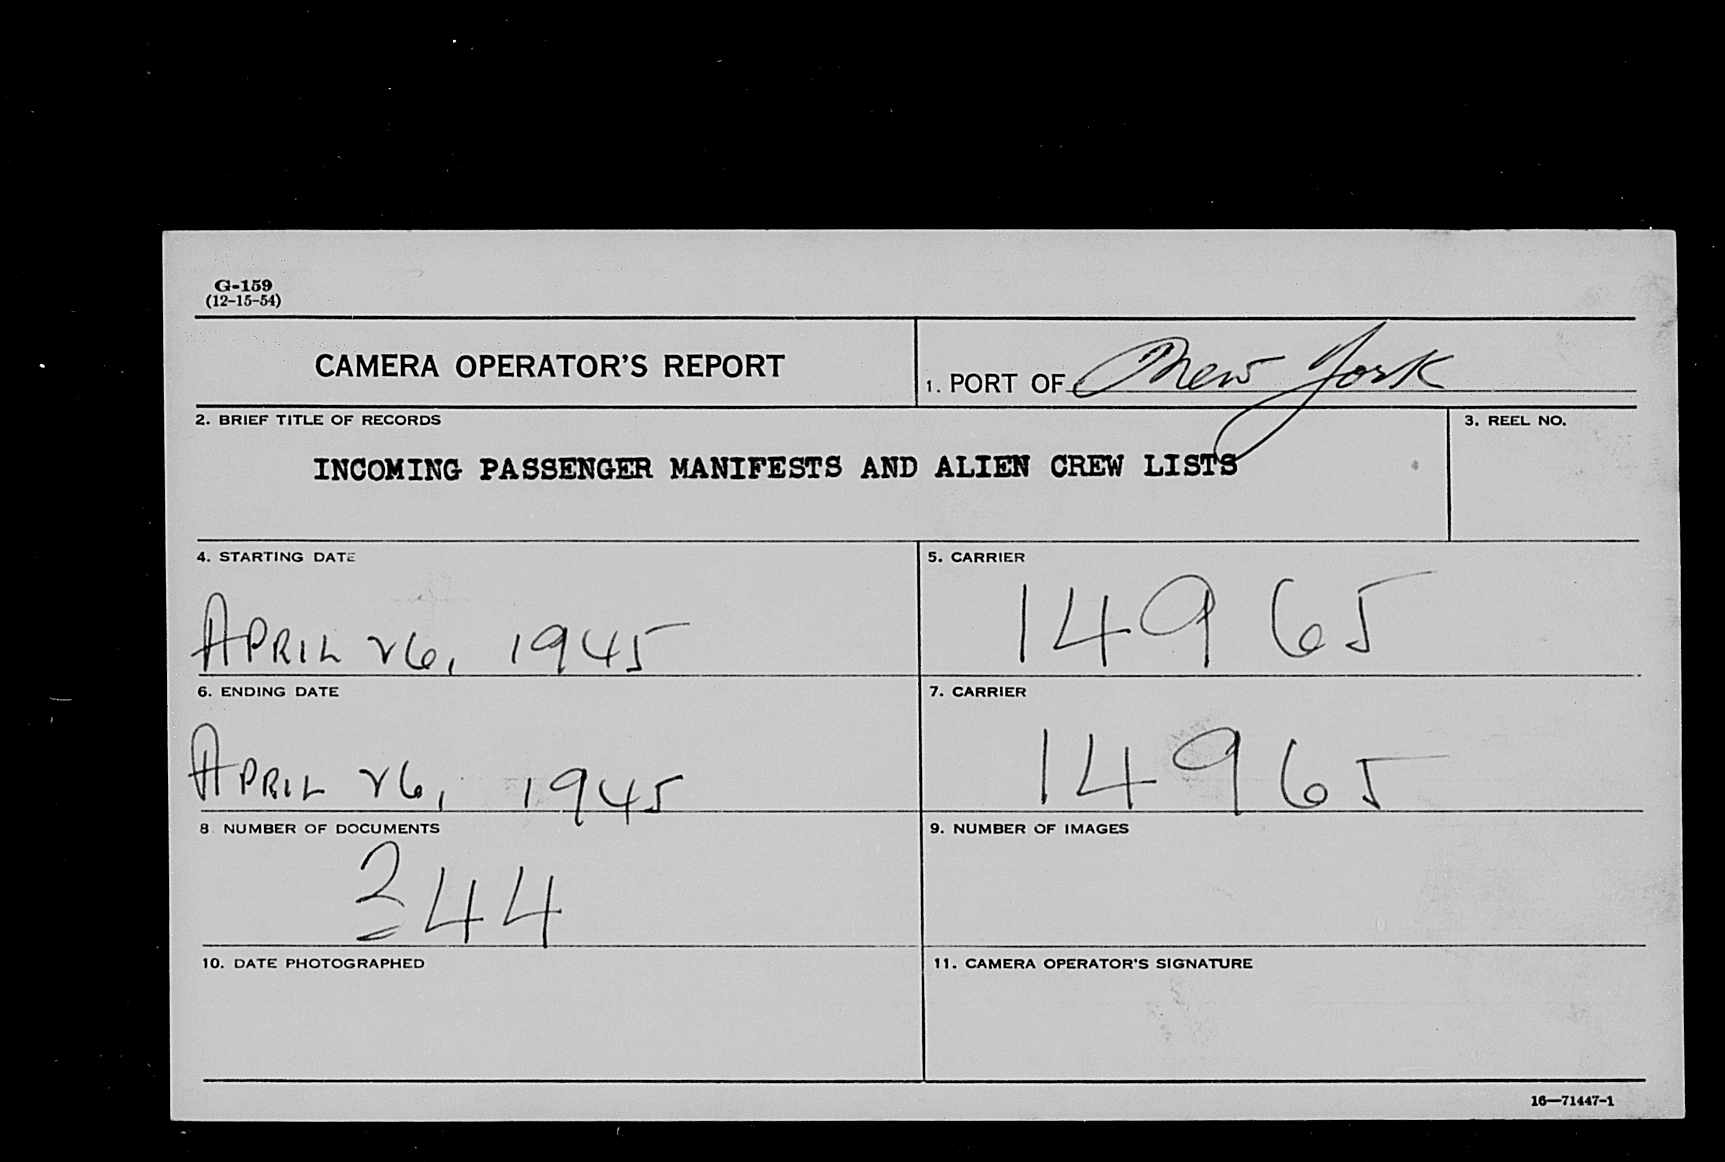 G-159
(12-15-54)
CAMERA OPERATOR'S REPORT
1. PORT OF New York
2. BRIEF TITLE OF RECORDS
3. REEL NO.
INCOMING PASSENGER MANIFESTS AND ALIEN CREW LISTS
4. STARTING DATE
5. CARRIER
APRIL 26, 1945
14965
6. ENDING DATE
7. CARRIER
APRIL 26, 1945
14965
8 NUMBER OF DOCUMENTS
9. NUMBER OF IMAGES
344
10. DATE PHOTOGRAPHED
11. CAMERA OPERATOR'S SIGNATURE
16—71447-1